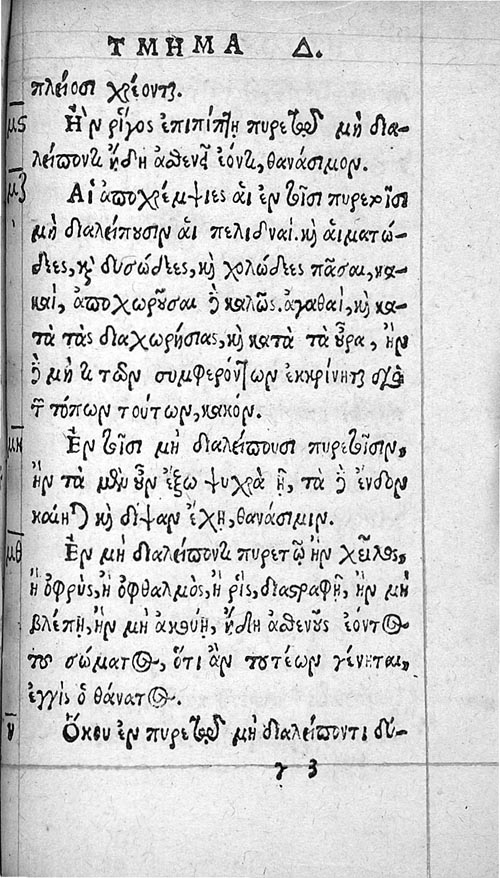 ΤΜΗΜΑ Δ.
πλείοσι χρέονται.
μς Ἢν ῥῖγος ἐπιπίπτῃ πυρετῷ μὴ δια-
λείποντι ἤδη ἀσθενεῖ ἐόντι, θανάσιμον.
μζ Αἱ ἀποχρέμψιες αἱ ἐν τοῖσι πυρετοῖσι
μὴ διαλείπουσιν αἱ πελιδναὶ. καὶ αἱματώ-
δεες, καὶ δυσώδεες, καὶ χολώδεες πᾶσαι, κα-
καὶ, ἀποχωροῦσαι δὲ καλῶς. ἀγαθαὶ, καὶ κα-
τὰ τὰς διαχωρήσιας, καὶ κατὰ τὰ οὖρα, ἢν
δὲ μή τι τῶν συμφερόντων ἐκκρίνηται διὰ
τῶν τόπων τούτων, κακόν.
μη Ἐν τοῖσι μὴ διαλείπουσι πυρετοῖσιν,
ἢν τὰ μὲν οὖν ἔξω ψυχρὰ ᾖ, τὰ δὲ ἔνδον
καίηται καὶ δίψαν ἔχῃ, θανάσιμιν.
μθ Ἐν μὴ διαλείποντι πυρετῷ ἢν χεῖλος,
ἢ ὀφρὺς, ἢ ὀφθαλμὸς, ἢ ῥὶς, διαστραφῇ, ἢν μὴ
βλέπῃ, ἢν μὴ ἀκούῃ, ἤδη ἀσθενοῦς ἐόντος
του σώματος, ὅτι ἂν τουτέων γένηται,
ἐγγὶς ὁ θάνατος.
ν Ὅκου ἐν πυρετῷ μὴ διαλείποντι δύ-
γ 3